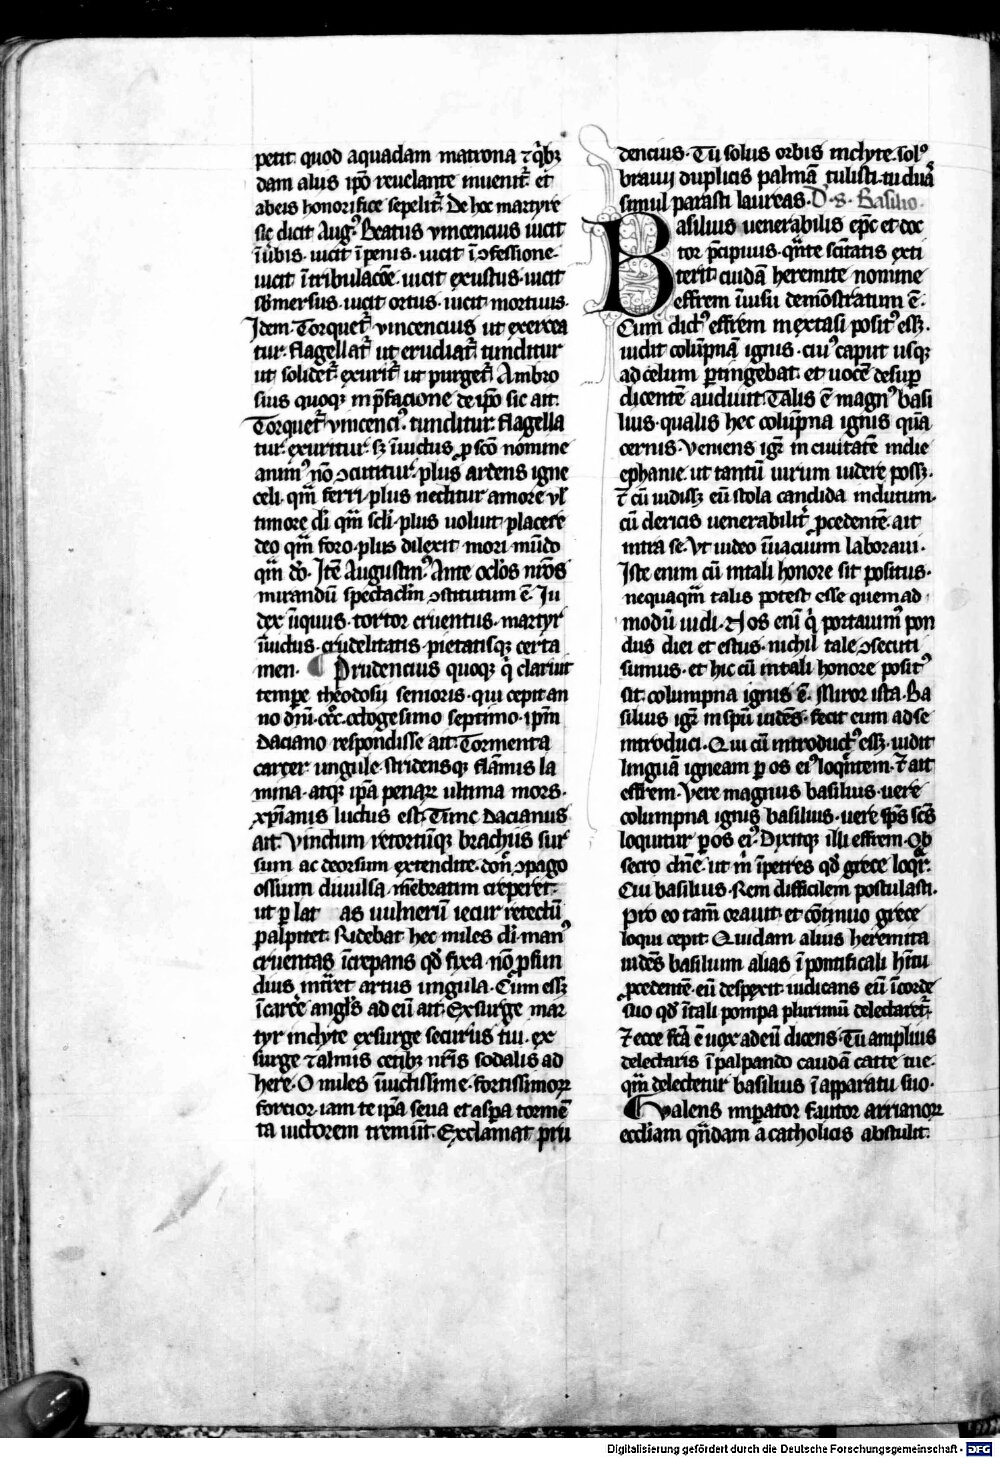 petit quod aquadam matrona ⁊ q̇bꝫ
dam alijs ip̅o reuelante inuenit᷑ et
abeis honorifice sepelit᷑. De hoc martyre
sic dicit Augꝰ Beatus vincencius uicit
i̅ ṽbis · uicit i̅ penis · uicit i̅ ꝯfessione ·
uicit i̅ tribulac̅oe · uicit exustus · uicit
sb̅mersus · uicit ortus · uicit mortuus ·
Idem · Torquet᷑ vincencius ut exercea
tur · flagellat᷑ ut erudiat᷑ tunditur
ut solidet᷑ exurit᷑ ut purget᷑ Ambro
sius quoqꝫ in p̅facione de ip̅o sic ait ·
Torquet᷑ vincenciꝰ · tunditur · flagella
tur · exuritur · sꝫ i̅uictus ꝑ sc̅o nomine
animꝰ no̅ ꝯcutitur · plus ardens igne
celi · qm̅ ferri · plus nectitur amore ul̅
timore di̅ qm̅ scl̅i · plus uoluit placere
deo qm̅ foro · plus dilexit mori mu̅do
qm̅ do̅ · Ite̅ Augustinꝰ Ante oc̅los nr̅os
mirandu̅ spectacl̅m ꝯstitutum e̅ Iu
dex iniquus · tortor cruentus · martyr
i̅uictus · crudelitatis · pietatisqꝫ certa
men · ¶ Prudencius quoqꝫ q̇ claruit
tempe theodosii senioris · qui cepit an
no dn̅i · ccc̅ · octogesimo septimo · ip̅m
Daciano respondisse ait · Tormenta
carcer · ungule · stridensqꝫ fla̅mis la
mina · atqꝫ ip̅a penaꝝ ultima mors ·
xp̅ianis ludus est · Tunc Dacianus
ait · Vinctum retortu̅qꝫ brachijs sur
sum ac deorsum extendite · don̅ ꝯpago
ossium diuulsa · me̅bratim creperet ·
ut ꝑ lat as uulneru̅ iecur retectu̅
palpitet · Ridebat hec miles di̅ manꝰ
cruentas i̅crepans qd̅ fixa no̅ ꝓfun
dius intraret artus ungula · Cum essꝫ
i̅ carce̅ angl̅s ad eu̅ ait · Exsurge mar
tyr inclyte exsurge securus tui · ex
surge ⁊ almis cetibꝫ nr̅is sodalis ad
here · O miles i̅uictissime · fortissimoꝝ
forcior · iam te ip̅a seua et asp̅a torme̅
ta uictorem tremu̅t · Exclamat pru
dencius · Tu solus orbis inclyte · solꝰ
brauij duplicis palma̅ tulisti · tu dua̅
simul parasti laureas · D̅ · s · Basilio ·
Basilius uenerabilis ep̅c et doc
tor p̅cipuus · qn̅te sc̅itatis exti
terit · cuida̅ heremite nomine
effrem i̅uisu demo̅stratum e̅ ·
Cum dictꝰ effrem in extasi positꝰ essꝫ ·
uidit colu̅pna̅ ignis · ciuꝰ caput usqꝫ
ad celum ꝑtingebat · et uoce̅ desup
dicente̅ audiuit · Talis e̅ magnꝰ basi
lius · qualis hec colu̅pna ignis qua̅
cernis · Veniens igr̅ in ciuitate̅ in die
ephanie · ut tantu̅ uirum uidere possꝫ ·
⁊ cu̅ uidissꝫ eu̅ stola candida indutum ·
cu̅ clericis uenerabilit᷑ ꝓcedente̅ · ait
intra se · Vt uideo i̅uacuum laboraui ·
Iste enim cu̅ in tali honore sit positus ·
nequaqm̅ talis potest esse quemad
modu̅ uidi · Nos eni̅ q̇ portauimꝰ pon
dus diei et estus · nichil tale ꝯsecuti
sumus · et hic cu̅ in tali honore positꝰ
sit · columpna ignis e̅ · Miror ista · Ba
silius igr̅ in sp̅u uide̅s · fecit eum ad se
introduci · Qui cu̅ introductꝰ essꝫ · uidit
lingua̅ igneam ꝑ os eiꝰ loqn̅tem · ⁊ ait
effrem · Vere magnus basilius · uere
columpna ignis basilius · uere sp̅s sc̅s
loquitur ꝑ os eiꝰ · Dixitqꝫ illi effrem · Ob
secro dn̅e · ut m̅ i̅petres qd̅ grece loqr᷑ ·
Cui basilius · Rem difficilem postulasti ·
pro eo tam̅ orauit · et co̅tinuo grece
loqui cepit · Quidam alius heremita
uide̅s basilium alias i̅ pontificali h̅itu
ꝓcedente̅ · eu̅ despexit · iudicans eu̅ i̅ corde
suo qd̅ i̅ tali pompa plurimu̅ delectaret᷑ ·
⁊ ecce f̅ca e̅ uox ad eu̅ dicens · Tu amplius
delectaris i̅ palpando cauda̅ catte tue ·
qm̅ delectetur basilius i̅ apparatu suo ·
¶ Valens imꝑator fautor arrianoꝝ
eccl̅iam qn̅dam a catholicis abstulit ·
Digitalisierung gefördert durch die Deutsche Forschungsgemeinschaft - DFG